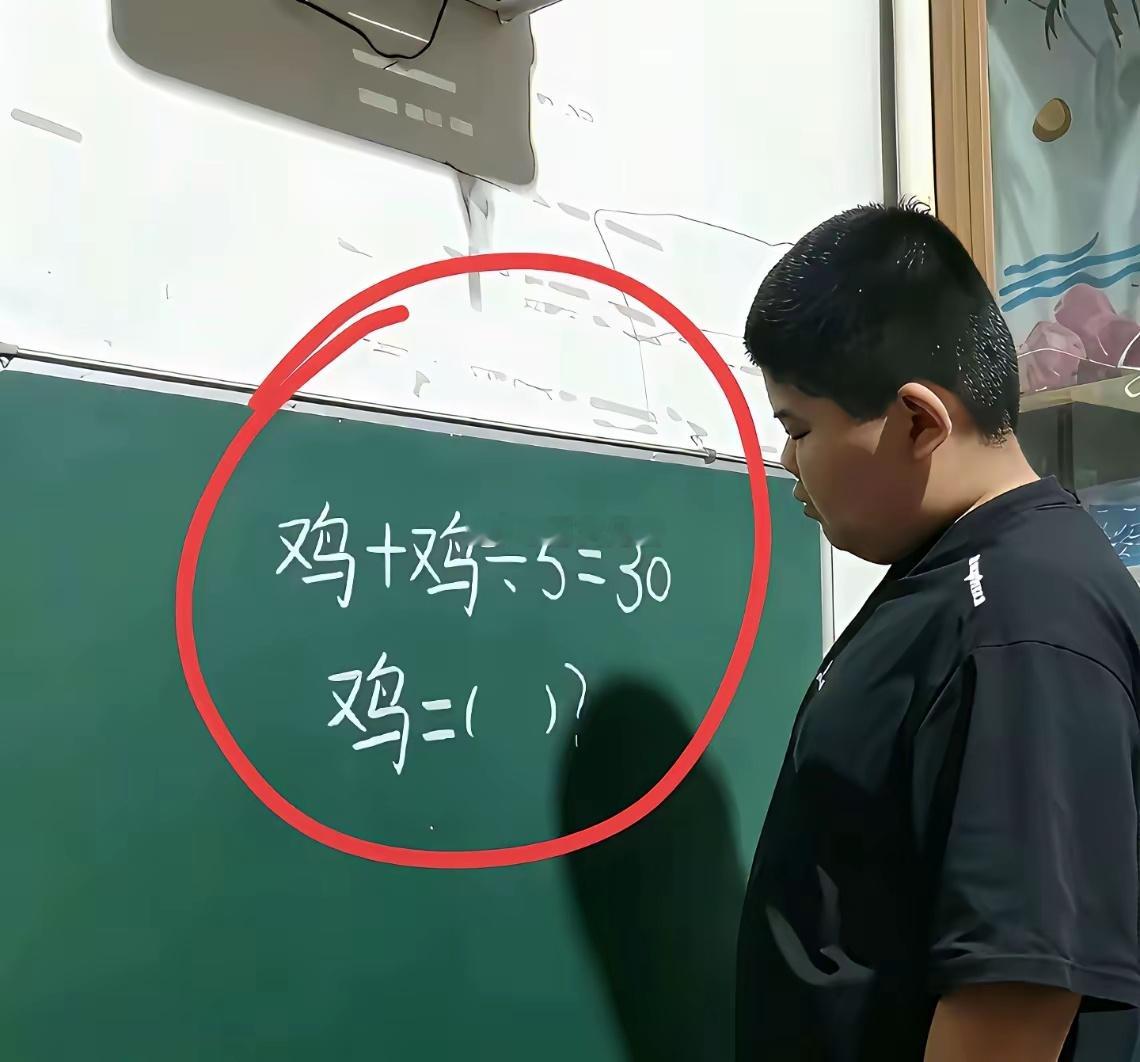 鸡+鸡÷5=30
鸡=( )?